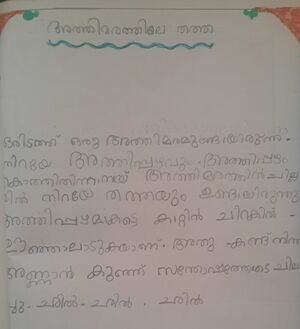 അത്തിമരത്തിലെ തത്ത
ഒരിടത്ത് ഒരു അത്തിമരമുണ്ടായിരുന്നു.
നിറയേ അത്തിപ്പഴവും. അത്തിപ്പഴം
കൊത്തിതിന്നുന്നത് അത്തിമരത്തിൻ ചില്ല
യിൽ നിറയേ തത്തയും ഉണ്ടായിരുന്നു
അത്തിപ്പഴമാകട്ടെ കാറ്റിൻ ചിറകിൽ
ഊഞ്ഞാലാടുകയാണ്. അതു കണ്ട് നിന്ന
അണ്ണാൻ കുഞ്ഞ് സന്തോഷത്തോടെ ചില
ച്ചു. ഛിൽ - ഛിൽ . ഛിൽ